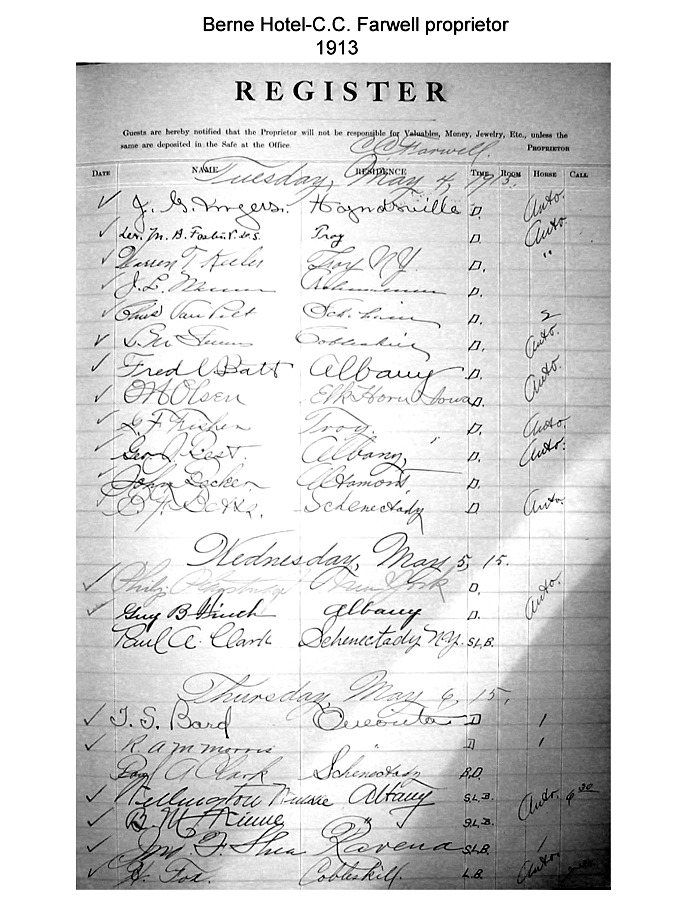 Berne Hotel-C.C. Farwell proprietor
1913
REGISTER
Guests are hereby notified that the Proprietor will not be responsible for Valuables, Money, Jewelry, Etc., unless the
same are deposited in the Safe at the Office.
C C Farwell. PROPRIETOR
DATE NAME RESIDENCE TIME ROOM HORSE CALL
Tuesday, May 4, 1915.
✓ J. G. Haynersville D. Auto.
✓ M. B. Foster Troy D. Auto.
✓ Warren T. Keeler Troy N.Y. D. "
✓ J. L. D.
✓ Van Pelt D. 2
✓ Cobleskill D. Auto.
✓ Fred Batt Albany D. Auto.
✓ Olsen Elk Horn Iowa D.
✓ Fisher Troy. D. Auto.
✓ Geo. J. Best. Albany, D. Auto.
✓ John Becker Altamont, D.
✓ Schenectady D. Auto.
Wednesday, May 5, 15.
✓ Philip New York D.
✓ Guy B Winch Albany D. Auto.
Paul A. Clark Schenectady N.Y. S.L.B.
Thursday, May 6, 15.
✓ T. S. Bard Oneonta D 1
✓ R. A. M morris " D 1
Paul A Clark Schenectady B.D.
✓ Wellington Albany S.L.B. Auto. 6 30
✓ B. M. Kinne " S.L.B.
✓ Wm F. Shea Ravena S.L.B. 1
✓ H. Fox. Cobleskill. L.B. Auto